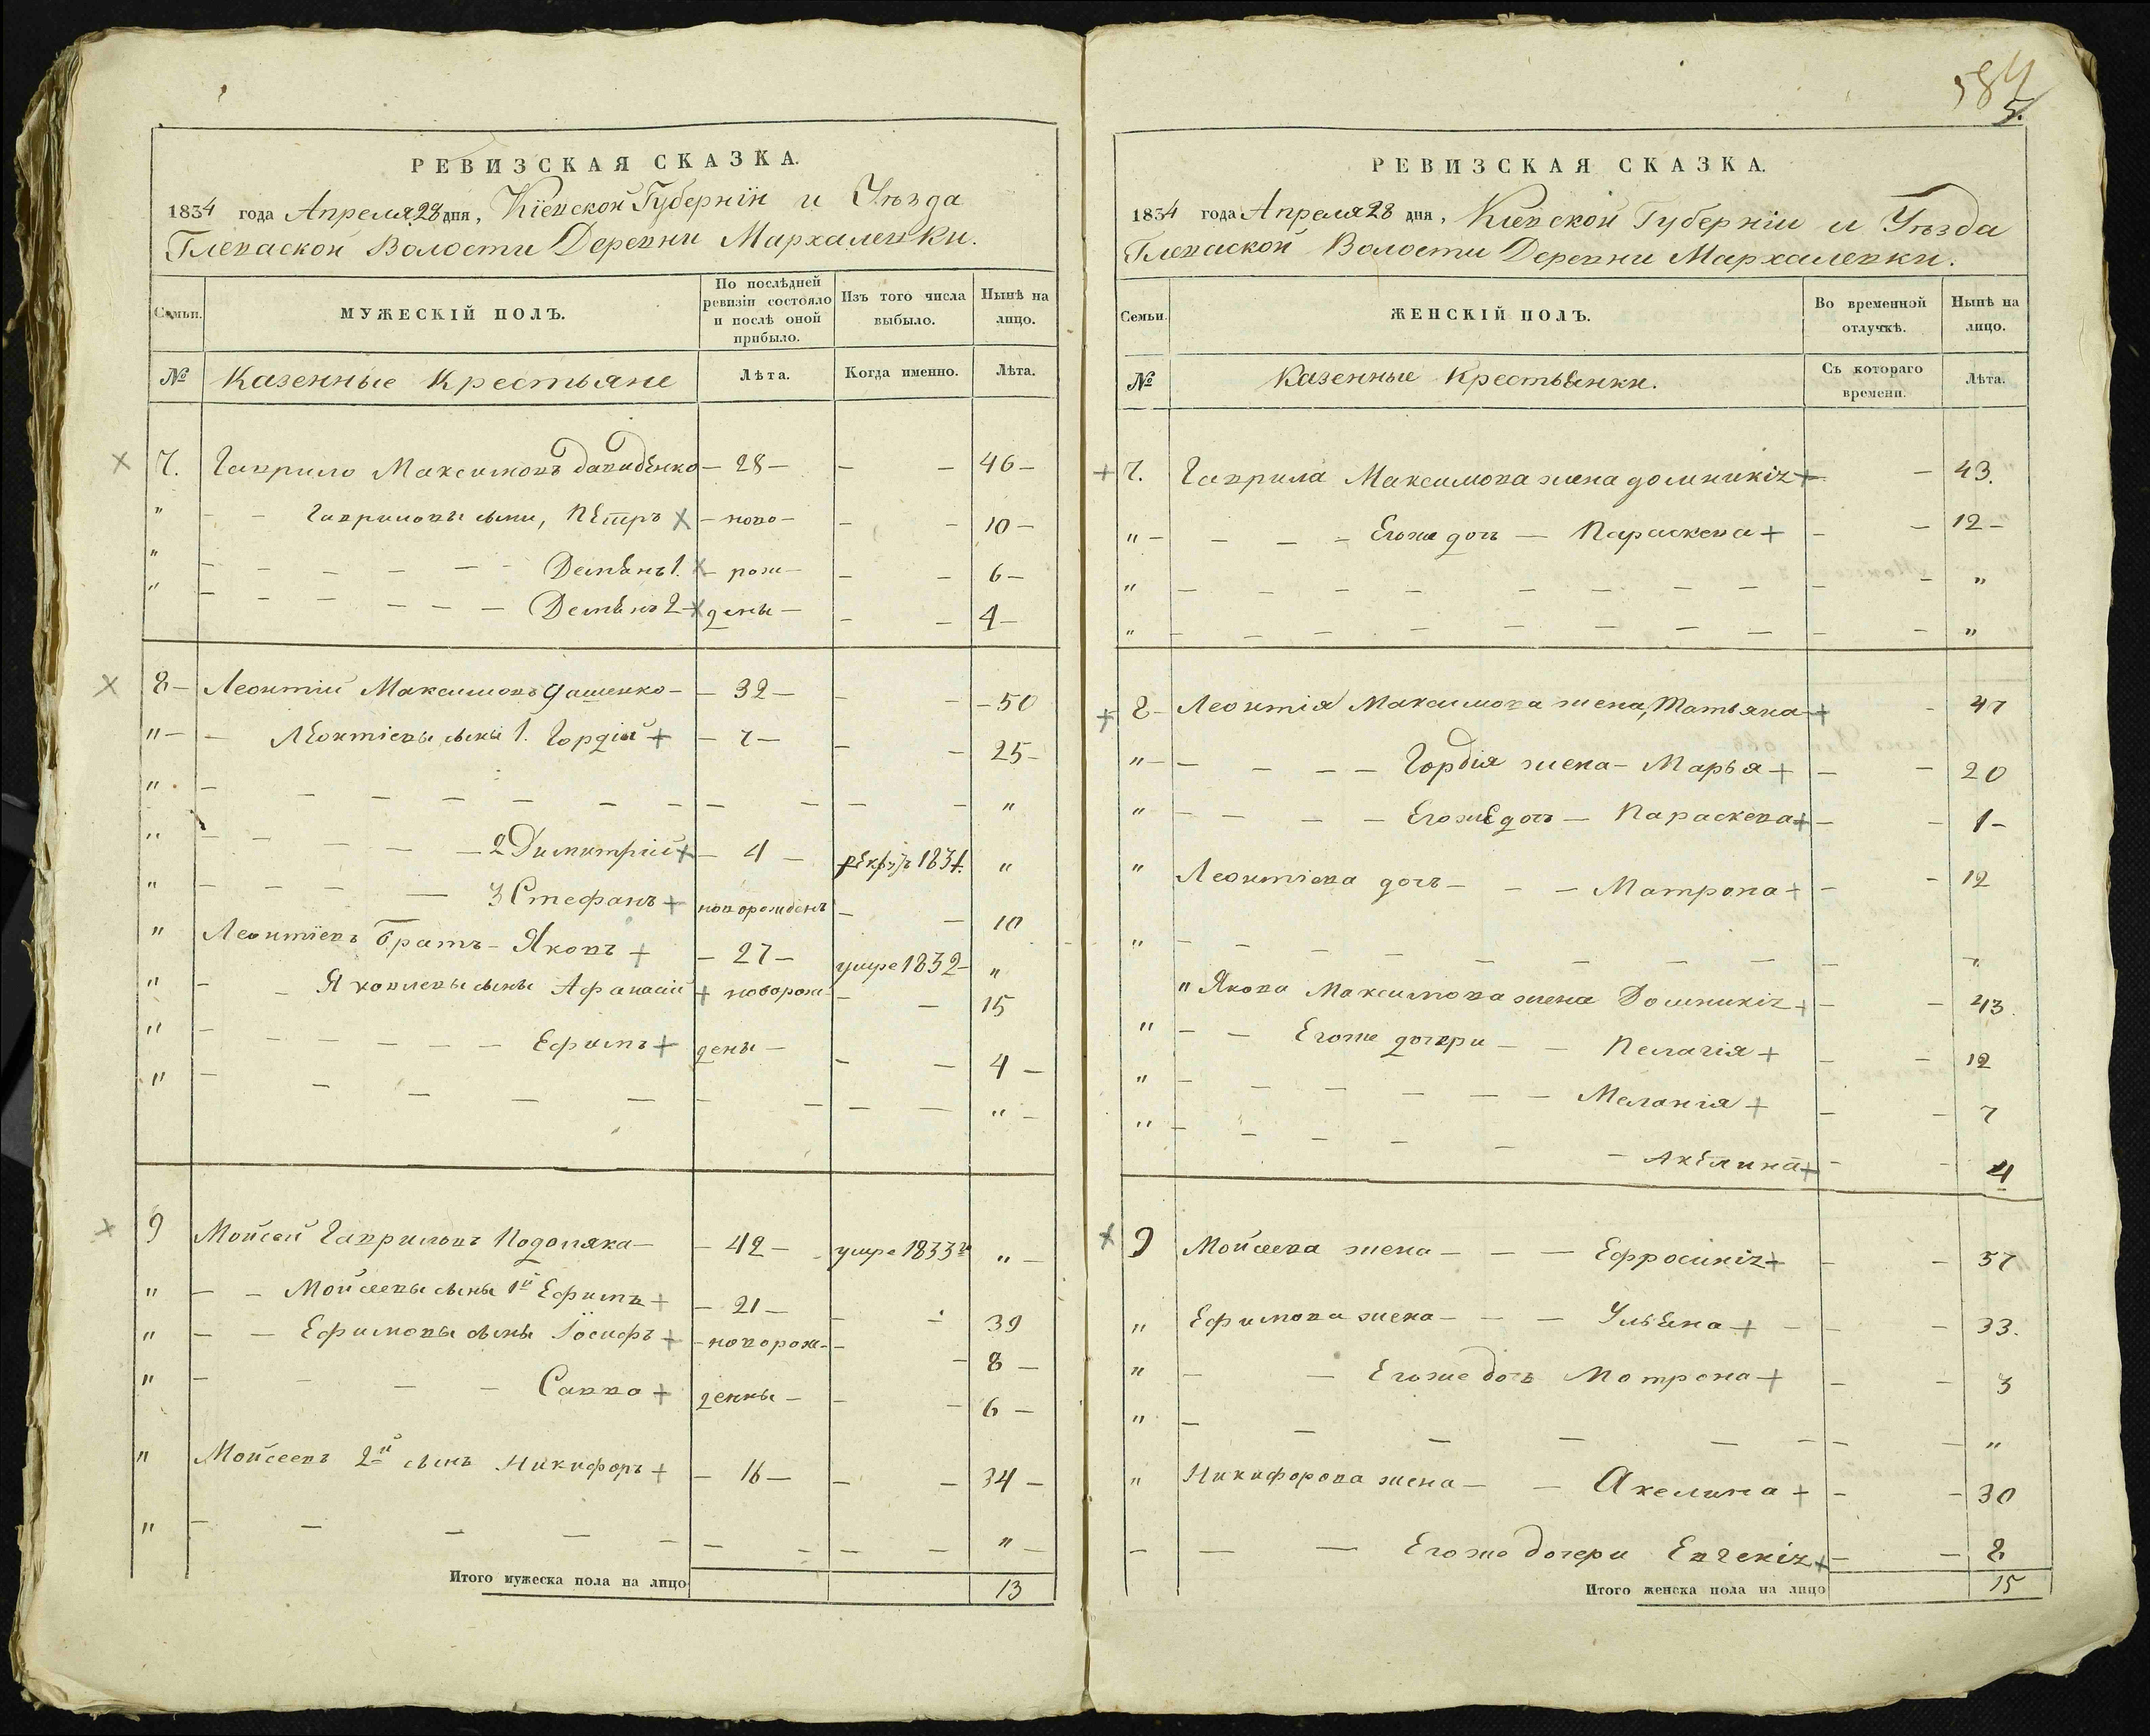 РЕВИЗСКАЯ СКАЗКА.
1834 года Апреля 28 дня, Кіевской Губерніи и Уѣзда
Глеваской Волости Деревни Мархалевки.
Семьи. МУЖЕСКІЙ ПОЛЪ. По послѣдней ревизіи состояло и послѣ оной прибыло. Изъ того числа выбыло. Нынѣ на лицо.
№ Казенные Крестьяне Лѣта. Когда именно. Лѣта.
7. Гаврило Максимовъ давиденко — 28 — — — 46 —
" — — Гавриловы сыны, Петръ — ново — — — 10 —
" — — — — — — Демьянъ 1. — рож — — — 6 —
" — — — — — — Демьянъ 2 — дены — — — 4 —
8 — Леонтій Максимовъ дашенко — — 32 — — — 50
" — — Леонтіевы сыны 1. Гордій — 7 — — — 25 —
" — — — — — — — — — — — "
" — — — — — 2 Димитрій — 4 — рекрутъ 1831. "
" — — — — — 3 Стефанъ новорожденъ — — 10
" Леонтіевъ Братъ — Яковъ — 27 — умре 1832 — "
" — — Яковлевы сыны Афанасій новорож — — 15
" — — — — — — Ефимъ дены — — — 4 —
" — — — — — — — — — — " —
9 Мойсей Гавриловъ Подоляка — — 42 — умре 1833 " —
" — — Мойсеевы сыны 1й Ефимъ — 21 — — — 39
" — — Ефимовы сыны Іосифъ — новорож — — — 8 —
" — — — — Савва денны — — — 6 —
" Мойсеевъ 2й сынъ Никифоръ — 16 — — — 34 —
" — — — — — — — — — " —
Итого мужеска пола на лицо 13
584
5.
РЕВИЗСКАЯ СКАЗКА.
1834 года Апреля 28 дня, Кіевской Губерніи и Уѣзда
Глеваской Волости Деревни Мархалевки.
Семьи. ЖЕНСКІЙ ПОЛЪ. Во временной отлучкѣ. Нынѣ на лицо.
№ Казенные Крестьянки. Съ котораго времени. Лѣта.
7. Гаврила Максимова жена домникія — 43.
" — — — — Егоже дочь — Параскева — — 12 —
" — — — — — — — — — — "
" — — — — — — — — — — "
8 — Леонтія Максимова жена, Татьяна — 47
" — — — — — Гордія жена — Марья — — 20
" — — — — Егоже дочь — Параскева — — 1 —
" Леонтіева дочь — — — Матрона — — 12
" — — — — — — — — — "
" Якова Максимова жена Домникія — — 43.
" — — Егоже дочери — — Пелагія — — 12
" — — — — — — Меланія — — 7
" — — — — — — Акелина — — 4
9 Мойсеева жена — — — Ефросинія — — 57
" Ефимова жена — — — Ульяна — — — 33.
" — — Егоже дочь Мотрона — — 3
" — — — — — — — — "
" Никифорова жена — — Акелина — — 30
— — — Егоже дочери Евгенія — — 8
Итого женска пола на лицо 15